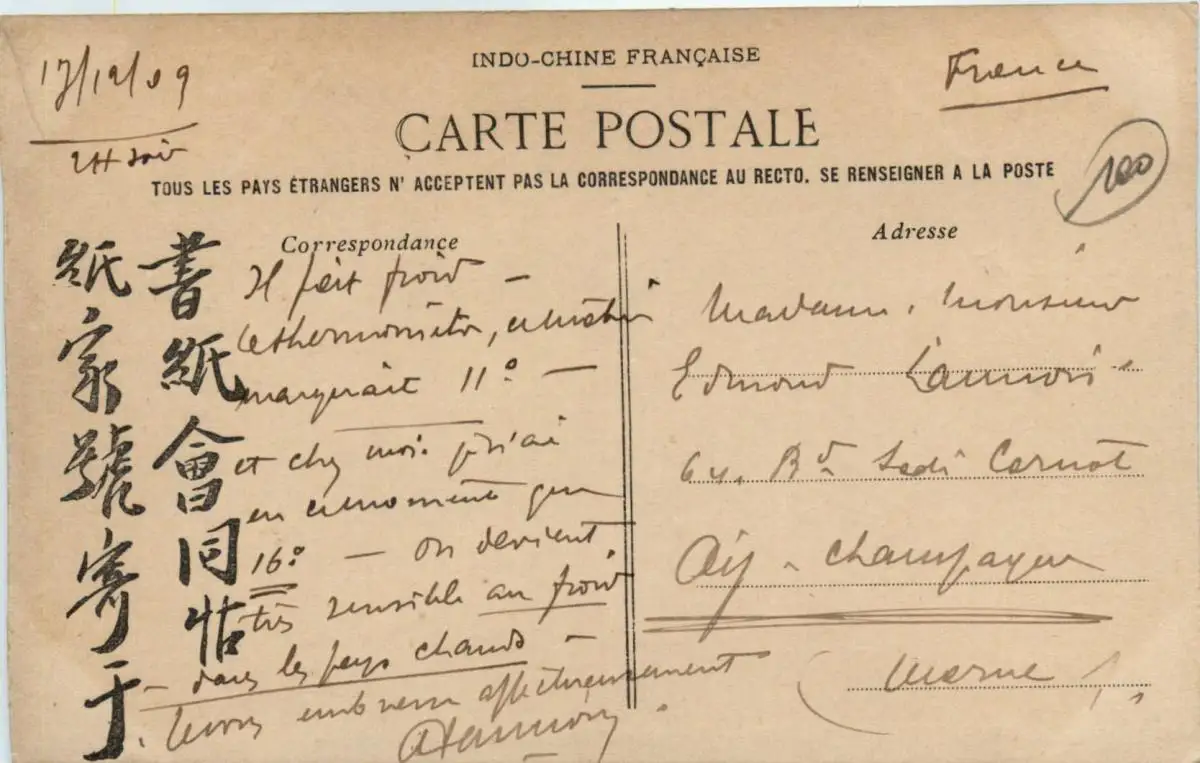 17/12/09
INDO-CHINE FRANÇAISE
France
CARTE POSTALE
2H soir
100
TOUS LES PAYS ÉTRANGERS N' ACCEPTENT PAS LA CORRESPONDANCE AU RECTO. SE RENSEIGNER A LA POSTE
Correspondance
Il fait froid —
le thermomètre, ce matin
marquait 11° —
et chez moi j'ai
en ce moment que
16° — on devient
très sensible au froid
— dans les pays chauds —
embrasse affectueusement
Adresse
Madame, Monsieur
Edmond Lannois
64, Bd Sadi Carnot
Aÿ - Champagne
(Marne)
書紙會同帖
紙家號寄于